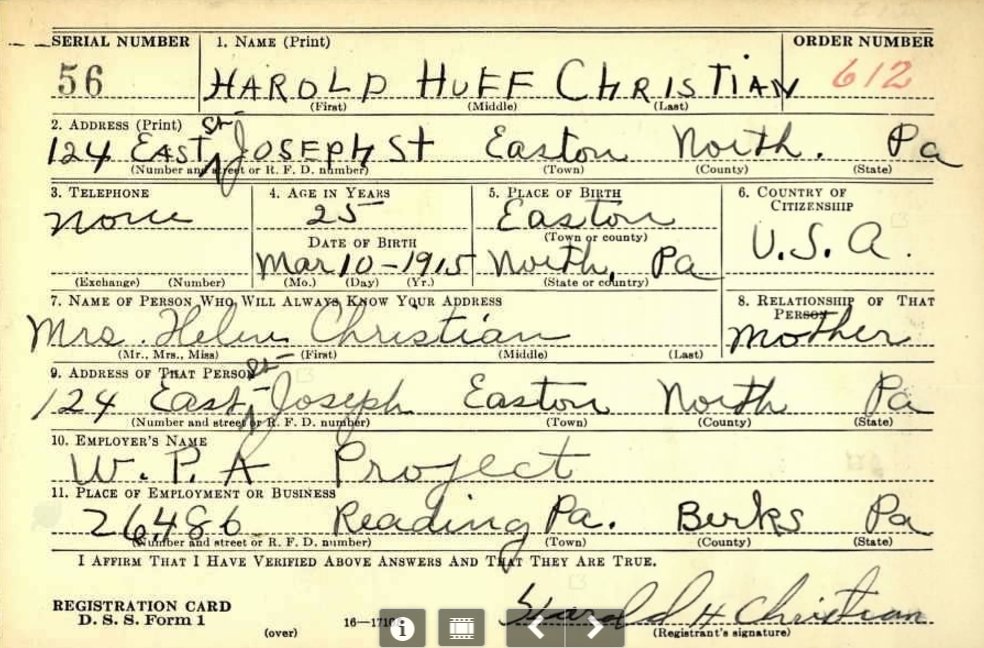 SERIAL NUMBER 1. NAME (Print) ORDER NUMBER
56 HAROLD HUFF CHRISTIAN 612
(First) (Middle) (Last)
2. ADDRESS (Print)
124 EAST St. JOSEPH St Easton North. Pa
(Number and street or R. F. D. number) (Town) (County) (State)
3. TELEPHONE 4. AGE IN YEARS 5. PLACE OF BIRTH 6. COUNTRY OF CITIZENSHIP
None 25 Easton U.S.A.
DATE OF BIRTH (Town or county)
Mar 10-1915 North, Pa
(Exchange) (Number) (Mo.) (Day) (Yr.) (State or country)
7. NAME OF PERSON WHO WILL ALWAYS KNOW YOUR ADDRESS 8. RELATIONSHIP OF THAT PERSON
Mrs. Helen Christian Mother
(Mr., Mrs., Miss) (First) (Middle) (Last)
9. ADDRESS OF THAT PERSON
124 East St- Joseph Easton North Pa
(Number and street or R. F. D. number) (Town) (County) (State)
10. EMPLOYER'S NAME
W. P. A Project
11. PLACE OF EMPLOYMENT OR BUSINESS
26,486 Reading Pa. Berks Pa
(Number and street or R. F. D. number) (Town) (County) (State)
I AFFIRM THAT I HAVE VERIFIED ABOVE ANSWERS AND THAT THEY ARE TRUE.
REGISTRATION CARD
D. S. S. Form 1 Harold H Christian
(over) (Registrant's signature)